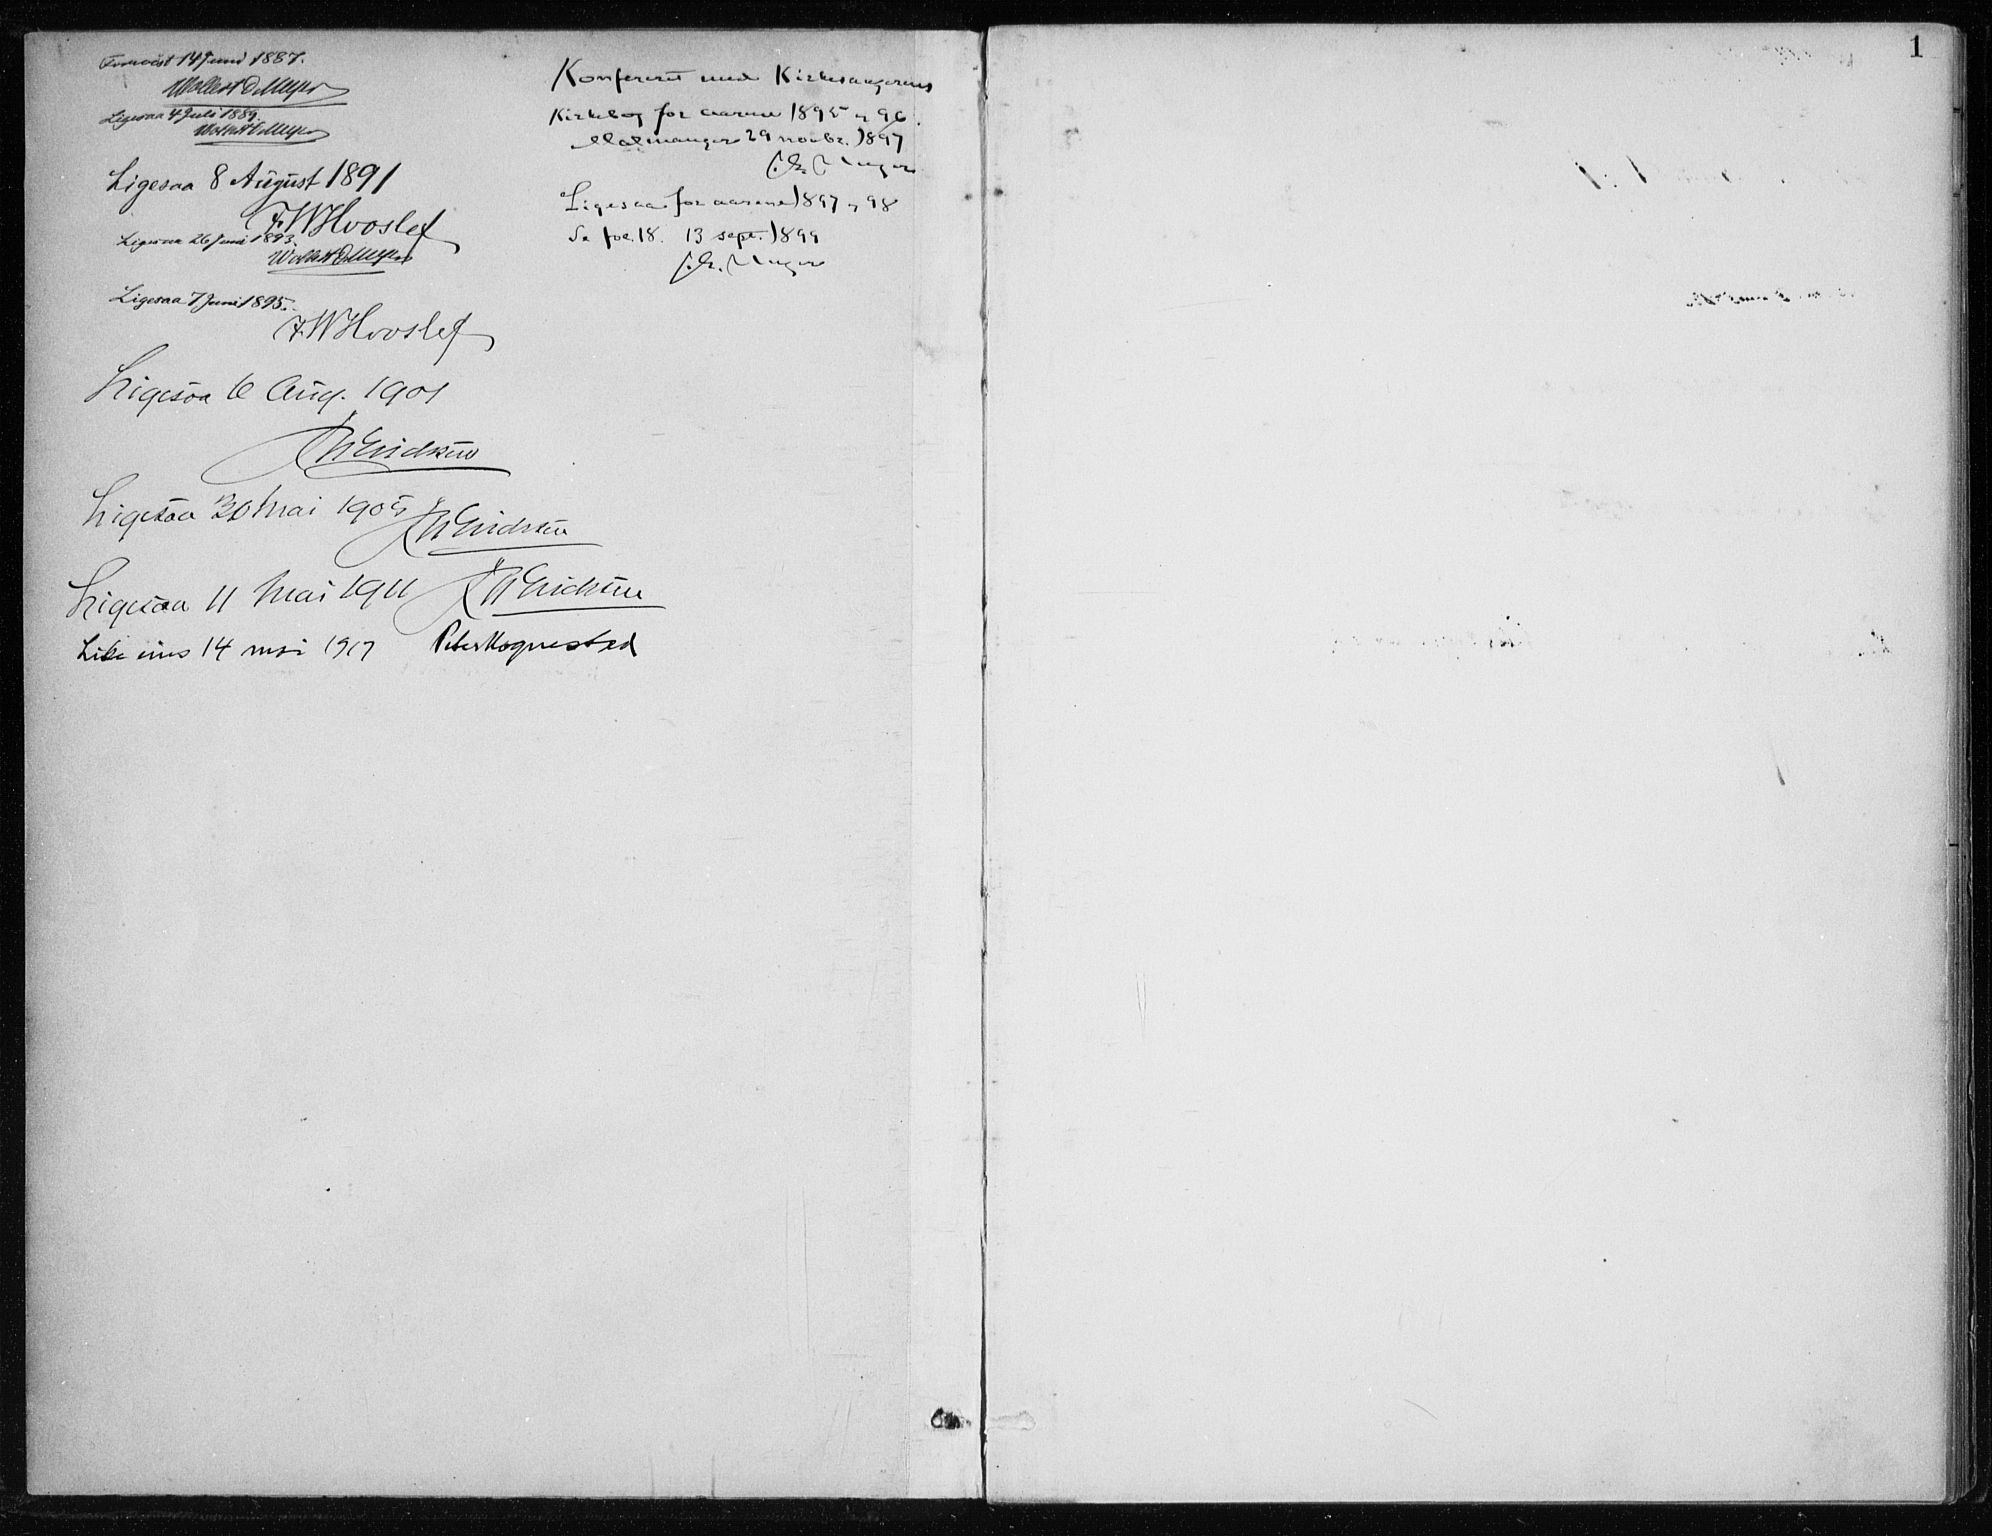 Forevist 14 Juni 1887.
Wollert D Meyer
Ligesaa 4 Juli 1889.
Wollert D Meyer
Ligesaa 8 August 1891
F.W Hvoslef
Ligesaa 26 Juni 1893.
Wollert D Meyer
Ligesaa 7 Juni 1895.
F.W Hvoslef
Ligesaa 6 Aug. 1901
Erichsen
Ligesaa 30 Mai 1905
Erichsen
Ligesaa 11 Mai 1911
Erichsen
Like eins 14 mai 1917 Peter Hognestad
Konfereret med Kirkesangerens
Kirkebog for aarene 1895 og 96.
Malmanger 29 novbr. 1897
Unger
Ligesaa for aarene 1897 og 98
Se fol. 18. 13 sept. 1899
Unger
1